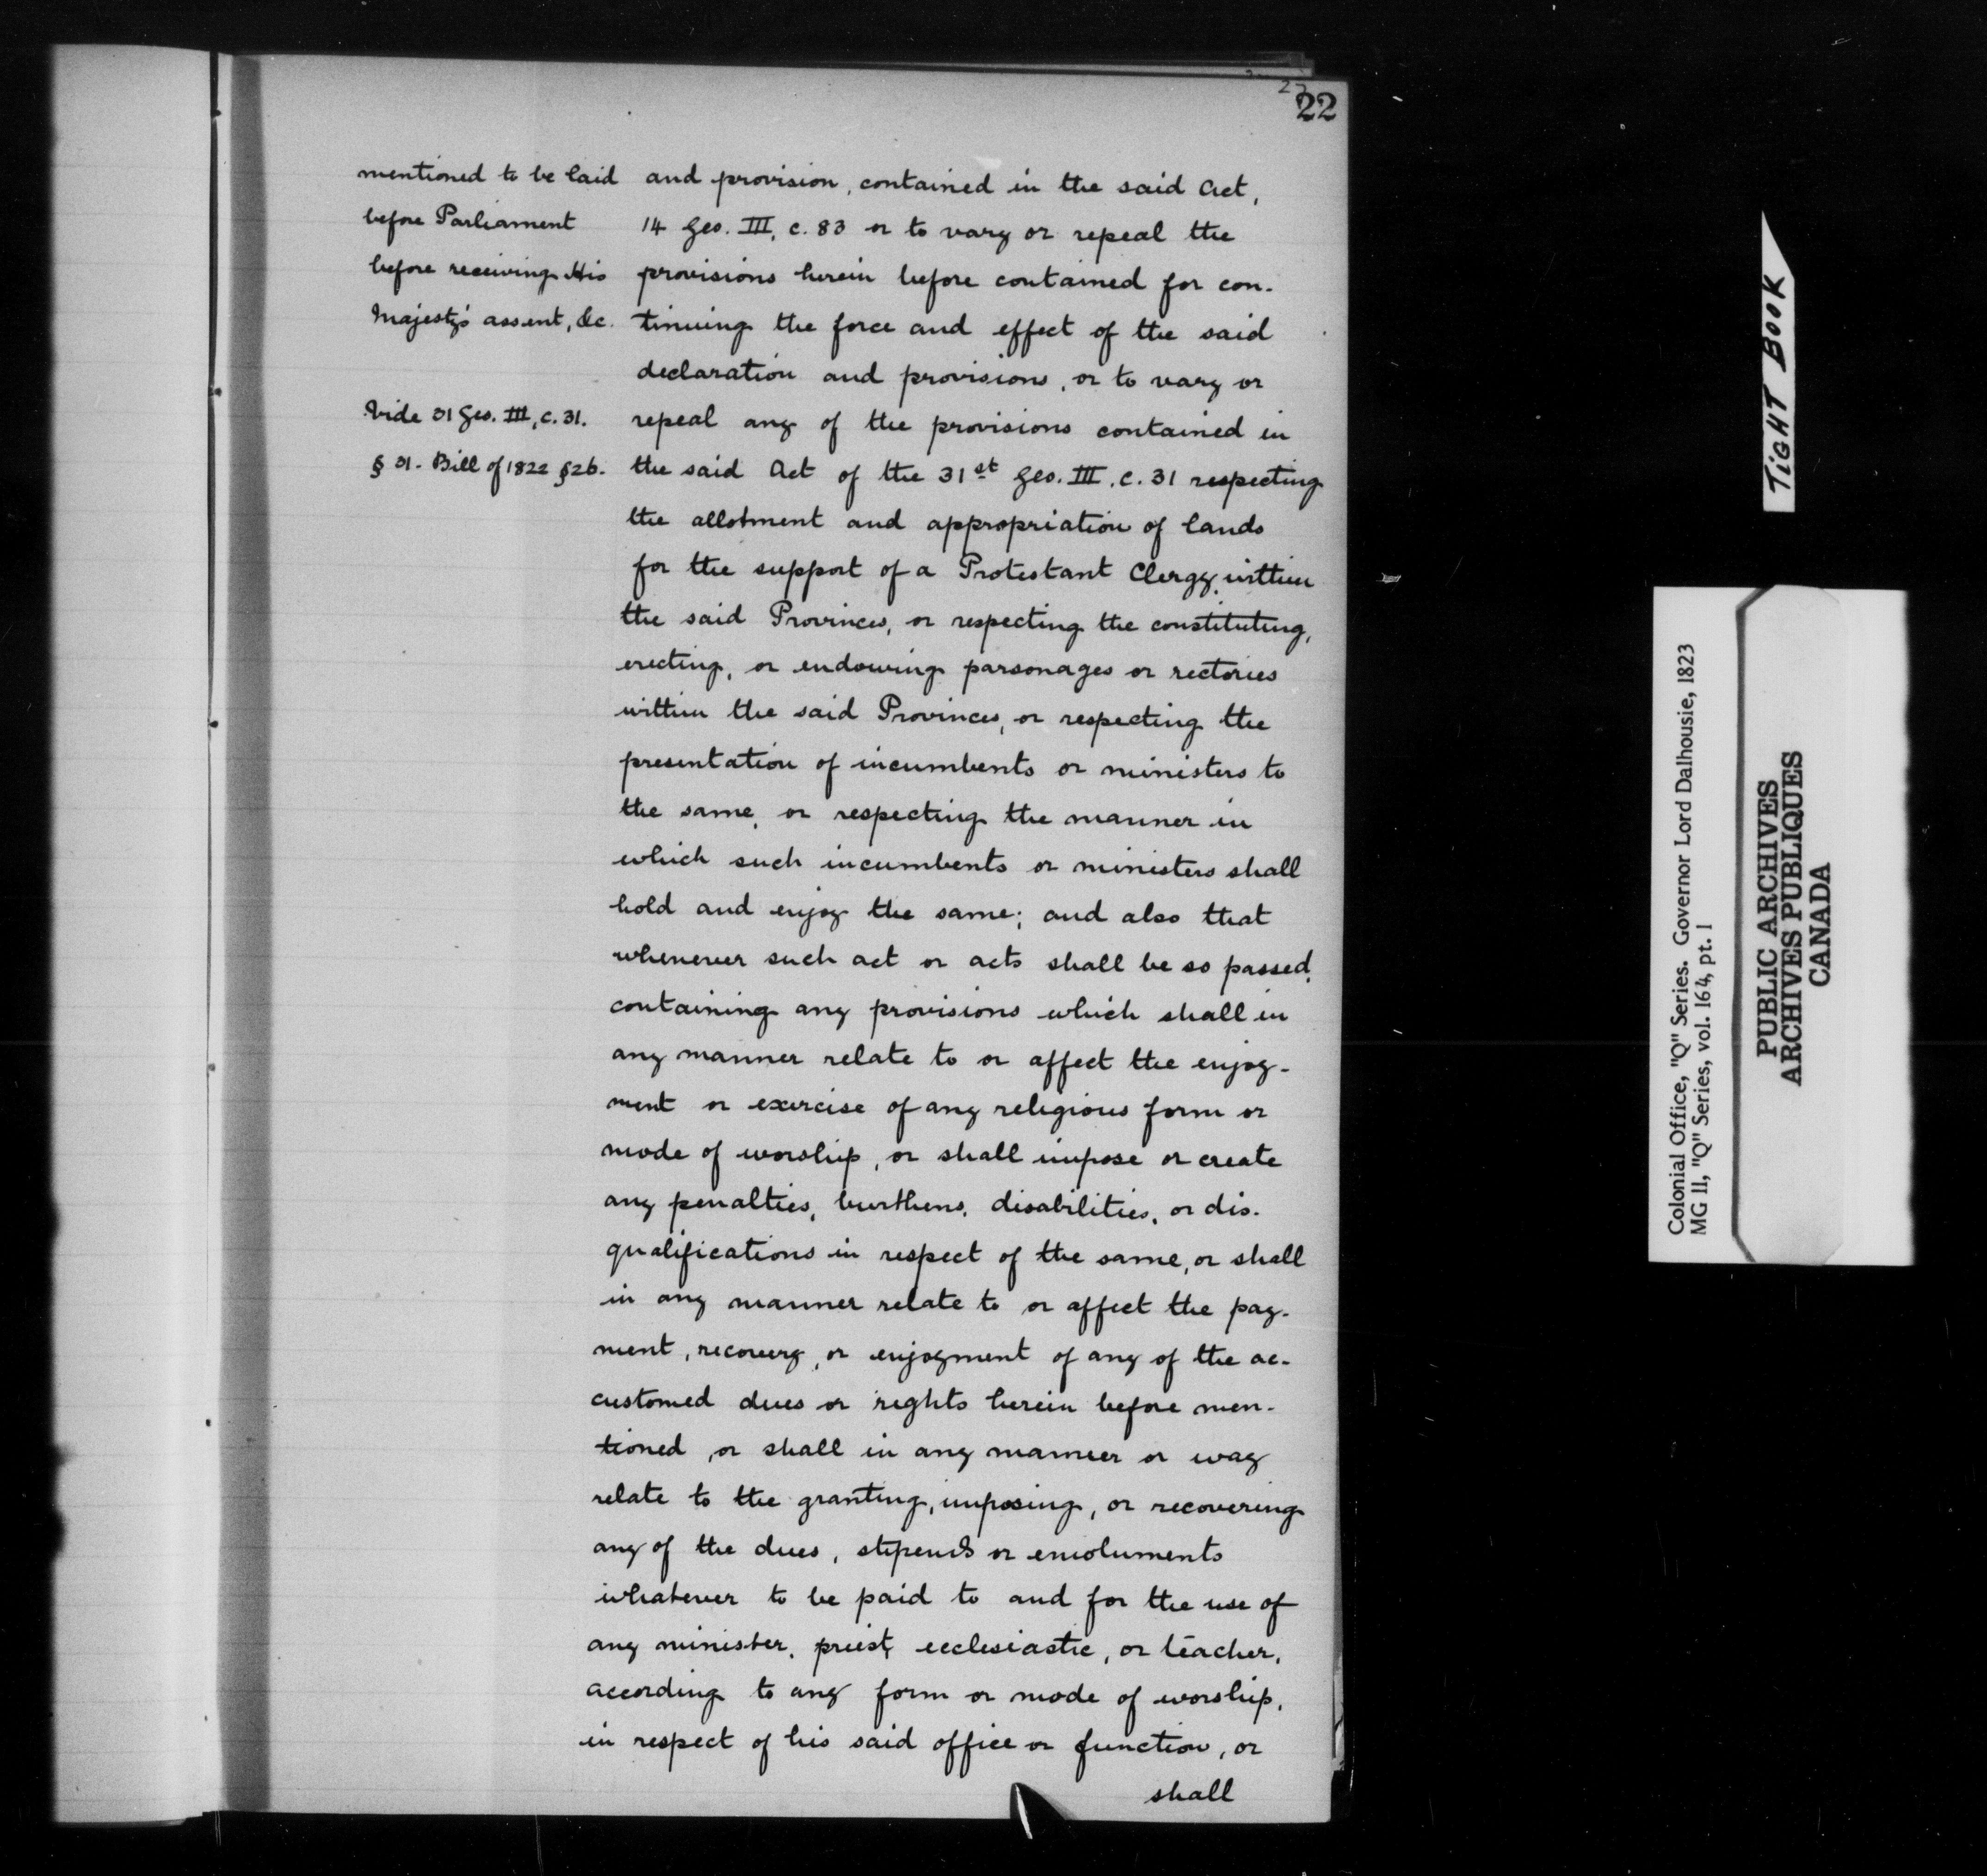 22
mentioned to be laid
before Parliament
before receiving His
Majesty's assent, &c.
Vide 31 Geo. III, c. 31.
§ 31. Bill of 1822 § 26.
and provision, contained in the said Act,
14 Geo. III, c. 83 or to vary or repeal the
provisions herein before contained for con-
tinuing the force and effect of the said
declaration and provisions, or to vary or
repeal any of the provisions contained in
the said Act of the 31st Geo. III, c. 31 respecting
the allotment and appropriation of lands
for the support of a Protestant Clergy, within
the said Provinces, or respecting the constituting,
erecting, or endowing parsonages or rectories
within the said Provinces, or respecting the
presentation of incumbents or ministers to
the same, or respecting the manner in
which such incumbents or ministers shall
hold and enjoy the same; and also that
whenever such act or acts shall be so passed,
containing any provisions which shall in
any manner relate to or affect the enjoy-
ment or exercise of any religious form or
mode of worship, or shall impose or create
any penalties, burthens, disabilities, or dis-
qualifications in respect of the same, or shall
in any manner relate to or affect the pay-
ment, recovery, or enjoyment of any of the ac-
customed dues or rights herein before men-
tioned, or shall in any manner or way
relate to the granting, imposing, or recovering
any of the dues, stipends or emoluments
whatever to be paid to and for the use of
any minister, priest, ecclesiastic, or teacher,
according to any form or mode of worship,
in respect of his said office or function, or
shall
TIGHT BOOK
Colonial Office, "Q" Series. Governor Lord Dalhousie, 1823
MG 11, "Q" Series, vol. 164, pt. 1
PUBLIC ARCHIVES
ARCHIVES PUBLIQUES
CANADA